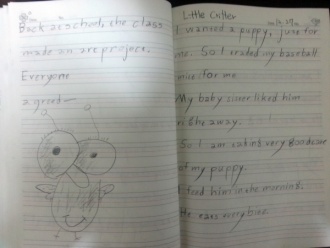 Back at school, the class
made an art project.
Everyone
agreed—
Little Critter
I wanted a puppy, just for
me. So I traded my baseball
mitt for me
My baby sister liked him
right away.
So I am taking very good care
of my puppy.
I feed him in the morning.
He eats everything